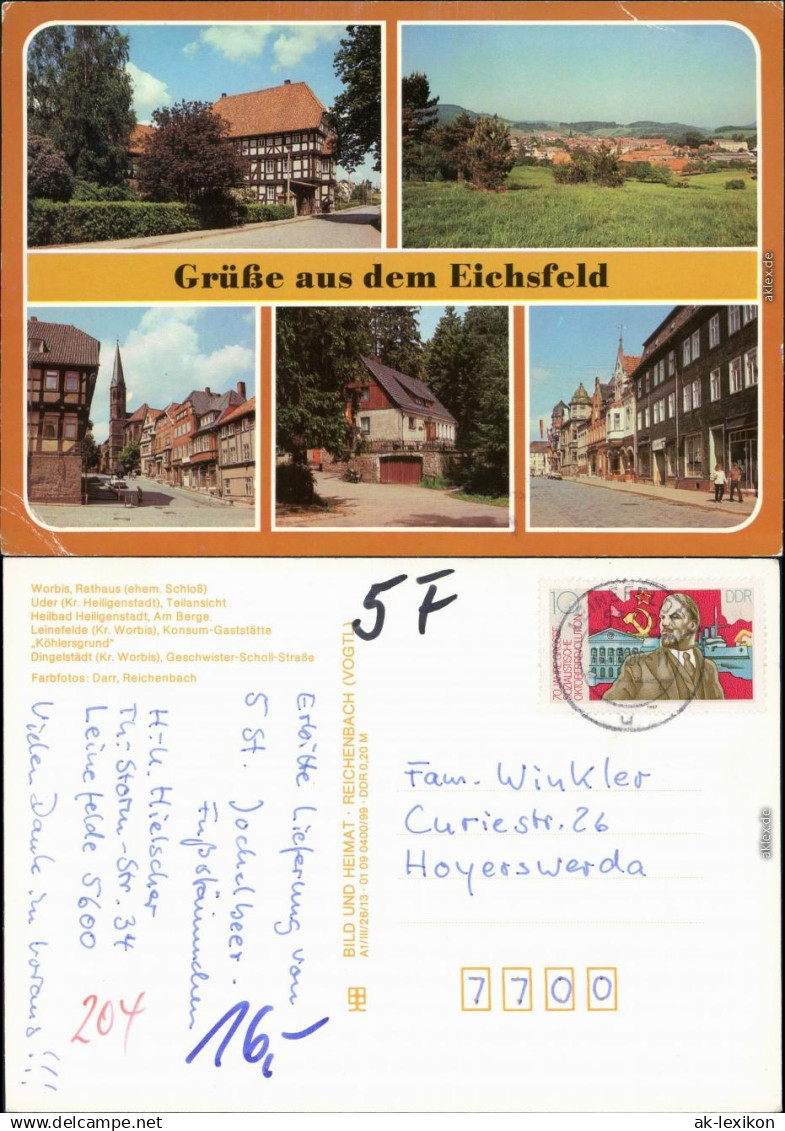 Grüße aus dem Eichsfeld
aklex.de
Worbis, Rathaus (ehem. Schloß)
Uder (Kr. Heiligenstadt), Teilansicht
Heilbad Heiligenstadt, Am Berge
Leinefelde (Kr. Worbis), Konsum-Gaststätte
„Köhlersgrund“
Dingelstädt (Kr. Worbis), Geschwister-Scholl-Straße
Farbfotos: Darr, Reichenbach
5F
10
DDR
70 JAHRE GROSSE
SOZIALISTISCHE
OKTOBERREVOLUTION
1987
BILD UND HEIMAT · REICHENBACH (VOGTL)
A1/III/26/13 · 01 09 0400/99 · DDR 0,20 M
Erbitte Lieferung von
5 St. Jochelbeer-
Fußstämmchen
H.-U. Hielscher
Th.-Storm-Str. 34
Leinefelde 5600
Vielen Dank im voraus!!!
204
16,-
Fam. Winkler
Curiestr. 26
Hoyerswerda
7700
aklex.de
ak-lexikon.com